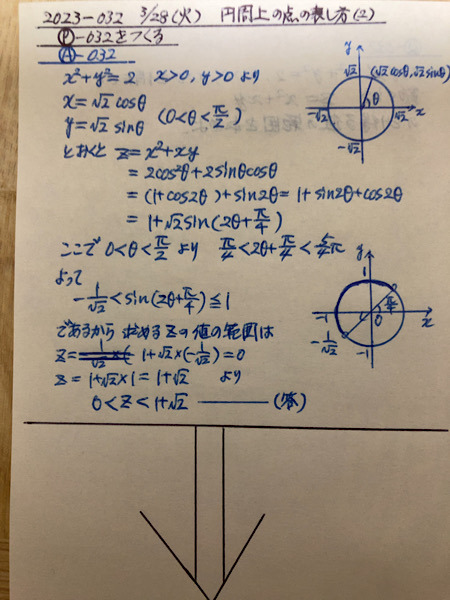 2023-032 3/28(火) 円周上の点の表し方(2)
Ⓟ-032をつくる
Ⓐ-032
x²+y²=2 x>0, y>0 より
x=√2 cosθ
y=√2 sinθ (0<θ<π/2)
とおくと z=x²+xy
=2cos²θ+2sinθcosθ
=(1+cos2θ)+sin2θ=1+sin2θ+cos2θ
=1+√2 sin(2θ+π/4)
ここで 0<θ<π/2 より π/4<2θ+π/4<5/4π
よって
-1/√2<sin(2θ+π/4)≦1
であるから 求めるzの値の範囲は
z= 1+√2×(-1/√2)=0
z=1+√2×1=1+√2 より
0<z<1+√2 (答)
y
√2
(√2cosθ,√2sinθ)
θ
-√2
√2
x
-√2
y
1
π/4
-1
0
x
-1/√2
-1